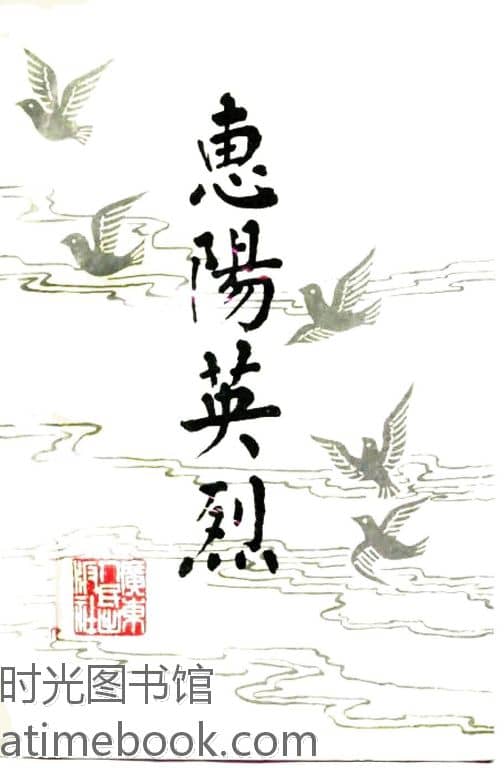 惠陽英烈
廣東
人民出
版社
时光图书馆
atimebook.com